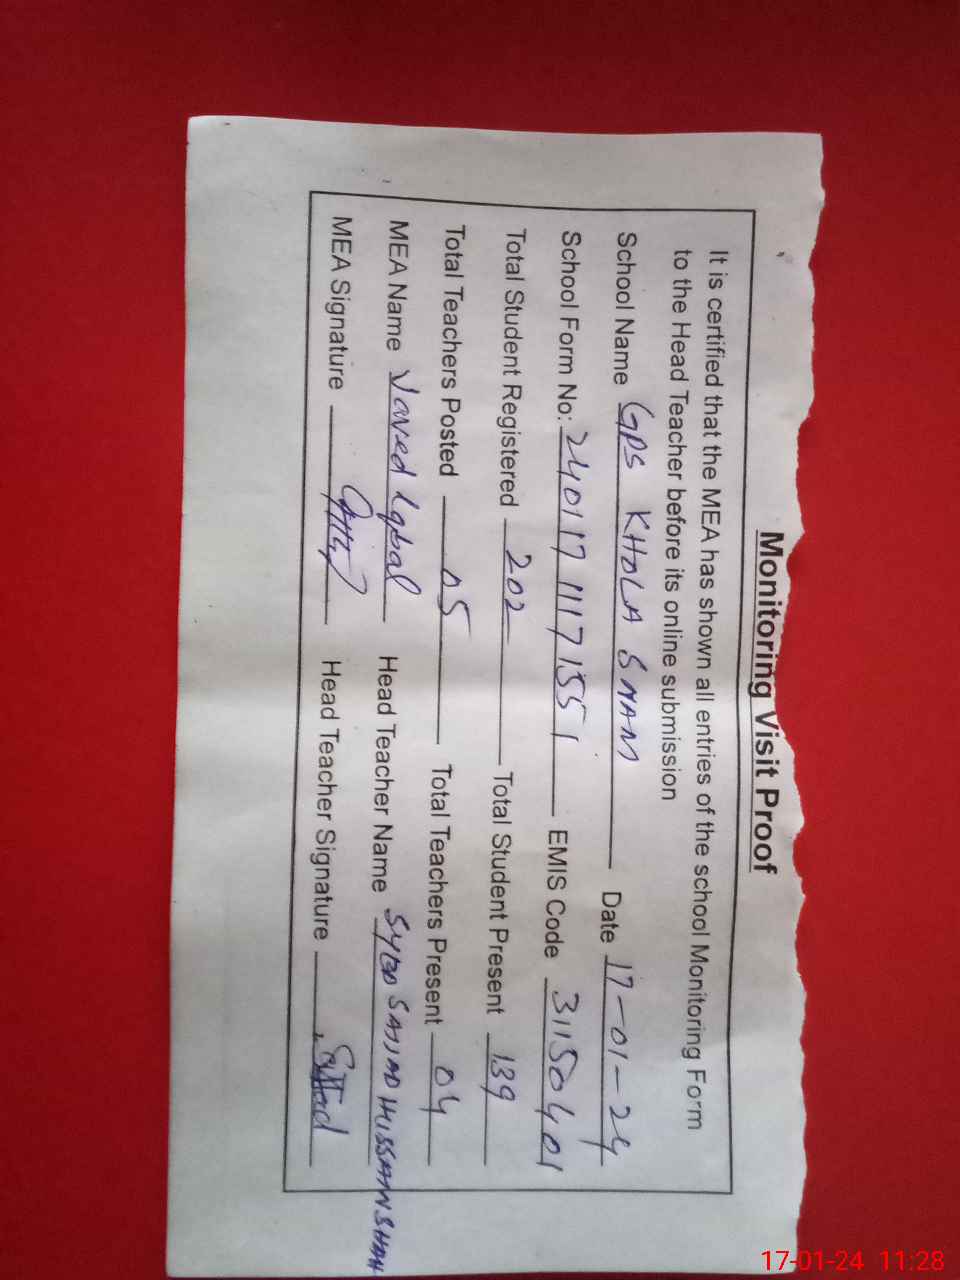 Monitoring Visit Proof
It is certified that the MEA has shown all entries of the school Monitoring Form
to the Head Teacher before its online submission
School Name GPS KHOLA SHAM Date 17-01-24
School Form No: 240117 1117155 1 EMIS Code 31150401
Total Student Registered 202 Total Student Present 139
Total Teachers Posted 05 Total Teachers Present 04
MEA Name Javed Iqbal Head Teacher Name SYED SAJJAD HUSSAIN SHAH
MEA Signature Head Teacher Signature Sajjad
17-01-24 11:28